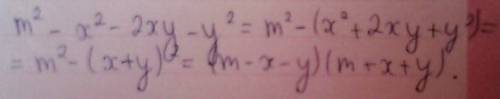 m² - x² - 2xy - y² = m² - (x² + 2xy + y²) =
= m² - (x+y)² = (m - x - y)(m + x + y).